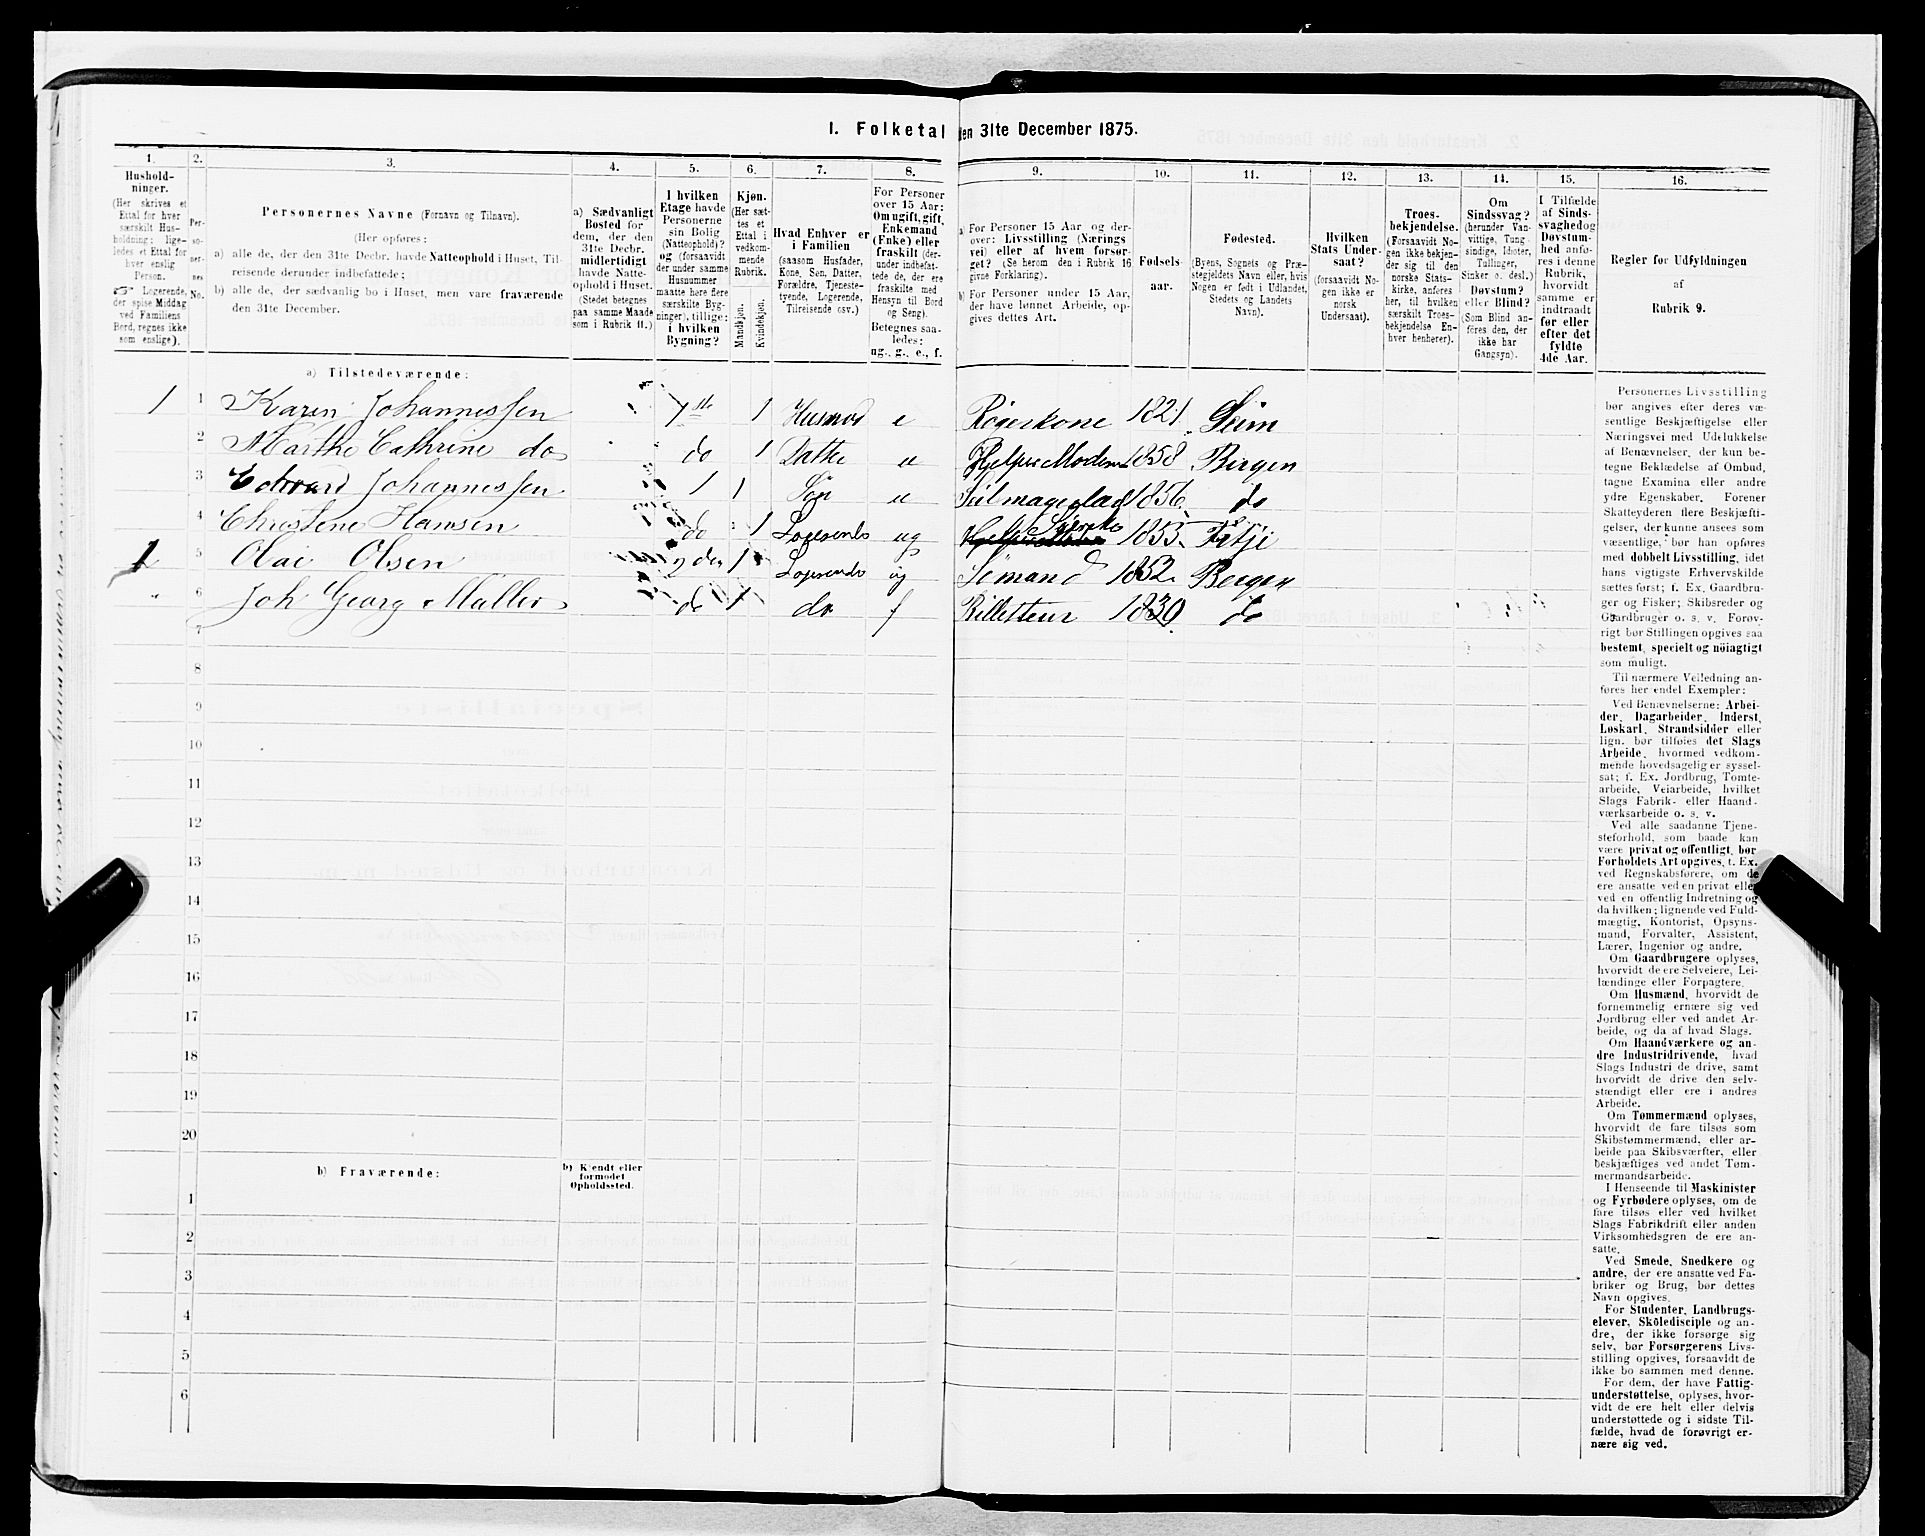 1. Folketal den 31te December 1875.
1.
Hushold-
ninger.
(Her skrives et
Ettal for hver
særskilt Hus-
holdning; lige-
ledes et Ettal for
hver enslig
Person.
Logerende,
der spise Middag
ved Familiens
Bord, regnes ikke
som enslige).
2.
Per-
so-
ner-
nes
No.
3.
Personernes Navne (Fornavn og Tilnavn).
(Her opføres:
a) alle de, der den 31te Decbr. havde Natteophold i Huset, Til-
reisende derunder indbefattede;
b) alle de, der sædvanlig bo i Huset, men vare fraværende
den 31te December.
4.
a) Sædvanligt
Bosted for
dem, der den
31te Decbr.
midlertidigt
havde Natte-
ophold i Huset.
(Stedet betegnes
paa samme Maade
som i Rubrik 11.)
5.
I hvilken
Etage havde
Personerne
sin Bolig
(Natteophold)?
og (forsaavidt
der under samme
Husnummer
maatte høre flere
særskilte Byg-
ninger), tillige:
i hvilken
Bygning?
6.
Kjøn.
(Her sæt-
tes et
Ettal i
vedkom-
mende
Rubrik.
Mandkjøn.
Kvindekjøn.
7.
Hvad Enhver er
i Familien
(saasom Husfader,
Kone, Søn, Datter,
Forældre, Tjeneste-
tyende, Logerende,
Tilreisende osv.)
8.
For Personer
over 15 Aar:
Om ugift, gift,
Enkemand
(Enke) eller
fraskilt (der-
under indbefat-
tede de, der ere
fraskilte med
Hensyn til Bord
og Seng).
Betegnes saa-
ledes:
ug., g., e., f.
9.
a) For Personer 15 Aar og der-
over: Livsstilling (Nærings
vei) eller af hvem forsør-
get? (Se herom den i Rubrik 16
givne Forklaring).
b) For Personer under 15 Aar,
der have lønnet Arbeide, op-
gives dettes Art.
10.
Fødsels-
aar.
11.
Fødested.
(Byens, Sognets og Præ-
stegjeldets Navn eller, hvis
Nogen er født i Udlandet,
Stedets og Landets
Navn).
12.
Hvilken
Stats Under-
saat?
(forsaavidt No-
gen ikke er
norsk
Undersaat).
13.
Troes-
bekjendelse.
(Forsaavidt No-
gen ikke bekjen-
der sig til den
norske Stats-
kirke, anføres
her, til hvilken
særskilt Troes-
bekjendelse En-
hver henhører).
14.
Om
Sindssvag?
(herunder Van-
vittige, Tung-
sindige, Idioter,
Tullinger,
Sinker o. desl.)
Døvstum?
eller Blind?
(Som Blind an-
føres den, der
ikke har
Gangsyn).
15.
I Tilfælde
af Sinds-
svaghed og
Døvstum-
hed anfø-
res i denne
Rubrik,
hvorvidt
samme er
indtraadt
før eller
efter det
fyldte
4de Aar.
16.
Regler for Udfyldningen
af
Rubrik 9.
a) Tilstedeværende:
1 1 Karen Johannessen 1ste 1 Husmod e Røgerkone 1821 Seim
2 Marthe Cathrine do do 1 u Hjelper Moderen 1858 Bergen
3 Edvard Johannessen 1 1 Søn u 1856 do
4 Christene Hansen do 1 Logerende ug 1855 Fitje
1 5 Olai Olsen 2den 1 Logerende ug Sømand 1852 Bergen
" 6 Joh Georg Müller do 1 do f Billetteur 1830 do
7
8
9
10
11
12
13
14
15
16
17
18
19
20
b) Fraværende:
b) Kjendt eller
formodet
Opholdssted.
1
2
3
4
5
6
Personernes Livsstilling
bør angives efter deres væ-
sentlige Beskjæftigelse eller
Næringsvei med Udelukkelse
af Benævnelser, der kun be-
tegne Beklædelse af Ombud,
tagne Examina eller andre
ydre Egenskaber. Forener
Skatteyderen flere Beskjæfti-
gelser, der kunne ansees som
væsentlige, bør han opføres
med dobbelt Livsstilling, idet
hans vigtigste Erhvervskilde
sættes først; f. Ex. Gaardbru-
ger og Fisker; Skibsreder og
Gaardbruger o. s. v. Forøv-
rigt bør Stillingen opgives saa
bestemt, specielt og nöiagtigt
som muligt.
Til nærmere Veiledning an-
føres her endel Exempler:
Ved Benævnelserne: Arbei-
der, Dagarbeider, Inderst,
Løskarl, Strandsidder eller
lign. bør tilføies det Slags
Arbeide, hvormed vedkom-
mende hovedsagelig er syssel-
sat; f. Ex. Jordbrug, Tomte-
arbeide, Veiarbeide, hvilket
Slags Fabrik- eller Haand-
værksarbeide o. s. v.
Ved alle saadanne Tjene-
steforhold, som baade kan
være privat og offentligt, bør
Forholdets Art opgives, t. Ex.
ved Regnskabsførere, om de
ere ansatte ved en privat eller
ved en offentlig Indretning og
da hvilken; lignende ved Fuld-
mægtig, Kontorist, Opsyns-
mand, Forvalter, Assistent,
Lærer, Ingeniør og andre.
Om Gaardbrugere oplyses,
hvorvidt de ere Selveiere, Lei-
lændinge eller Forpagtere.
Om Husmænd, hvorvidt de
fornemmelig ernære sig ved
Jordbrug eller ved andet Ar-
beide, og da af hvad Slags.
Om Haandværkere og an-
dre Industridrivende, hvad
Slags Industri de drive, samt
hvorvidt de drive den selv-
stændigt eller ere i andres
Arbeide.
Om Tømmermænd oplyses,
hvorvidt de fare tilsøs som
Skibstømmermænd, eller ar-
beide paa Skibsværfter, eller
beskjæftiges ved andet Tøm-
mermandsarbeide.
I Henseende til Maskinister
og Fyrbødere oplyses, om de
fare tilsøs eller ved hvilket
Slags Fabrikdrift eller anden
Virksomhedsgren de ere an-
satte.
Ved Smede, Snedkere og
andre, der ere ansatte ved Fa-
briker og Brug, bør dettes
Navn opgives.
For Studenter, Landbrugs-
elever, Skôledisciple og an-
dre, der ikke forsørge sig
selv, bør Forsørgerens Livs-
stilling opgives, forsaavidt de
ikke bo sammen med denne.
For dem, der have Fattig-
understøttelse, oplyses, hvor-
vidt de ere helt eller delvis
understøttede og i sidste Til-
fælde, hvad de forøvrigt er-
nære sig ved.